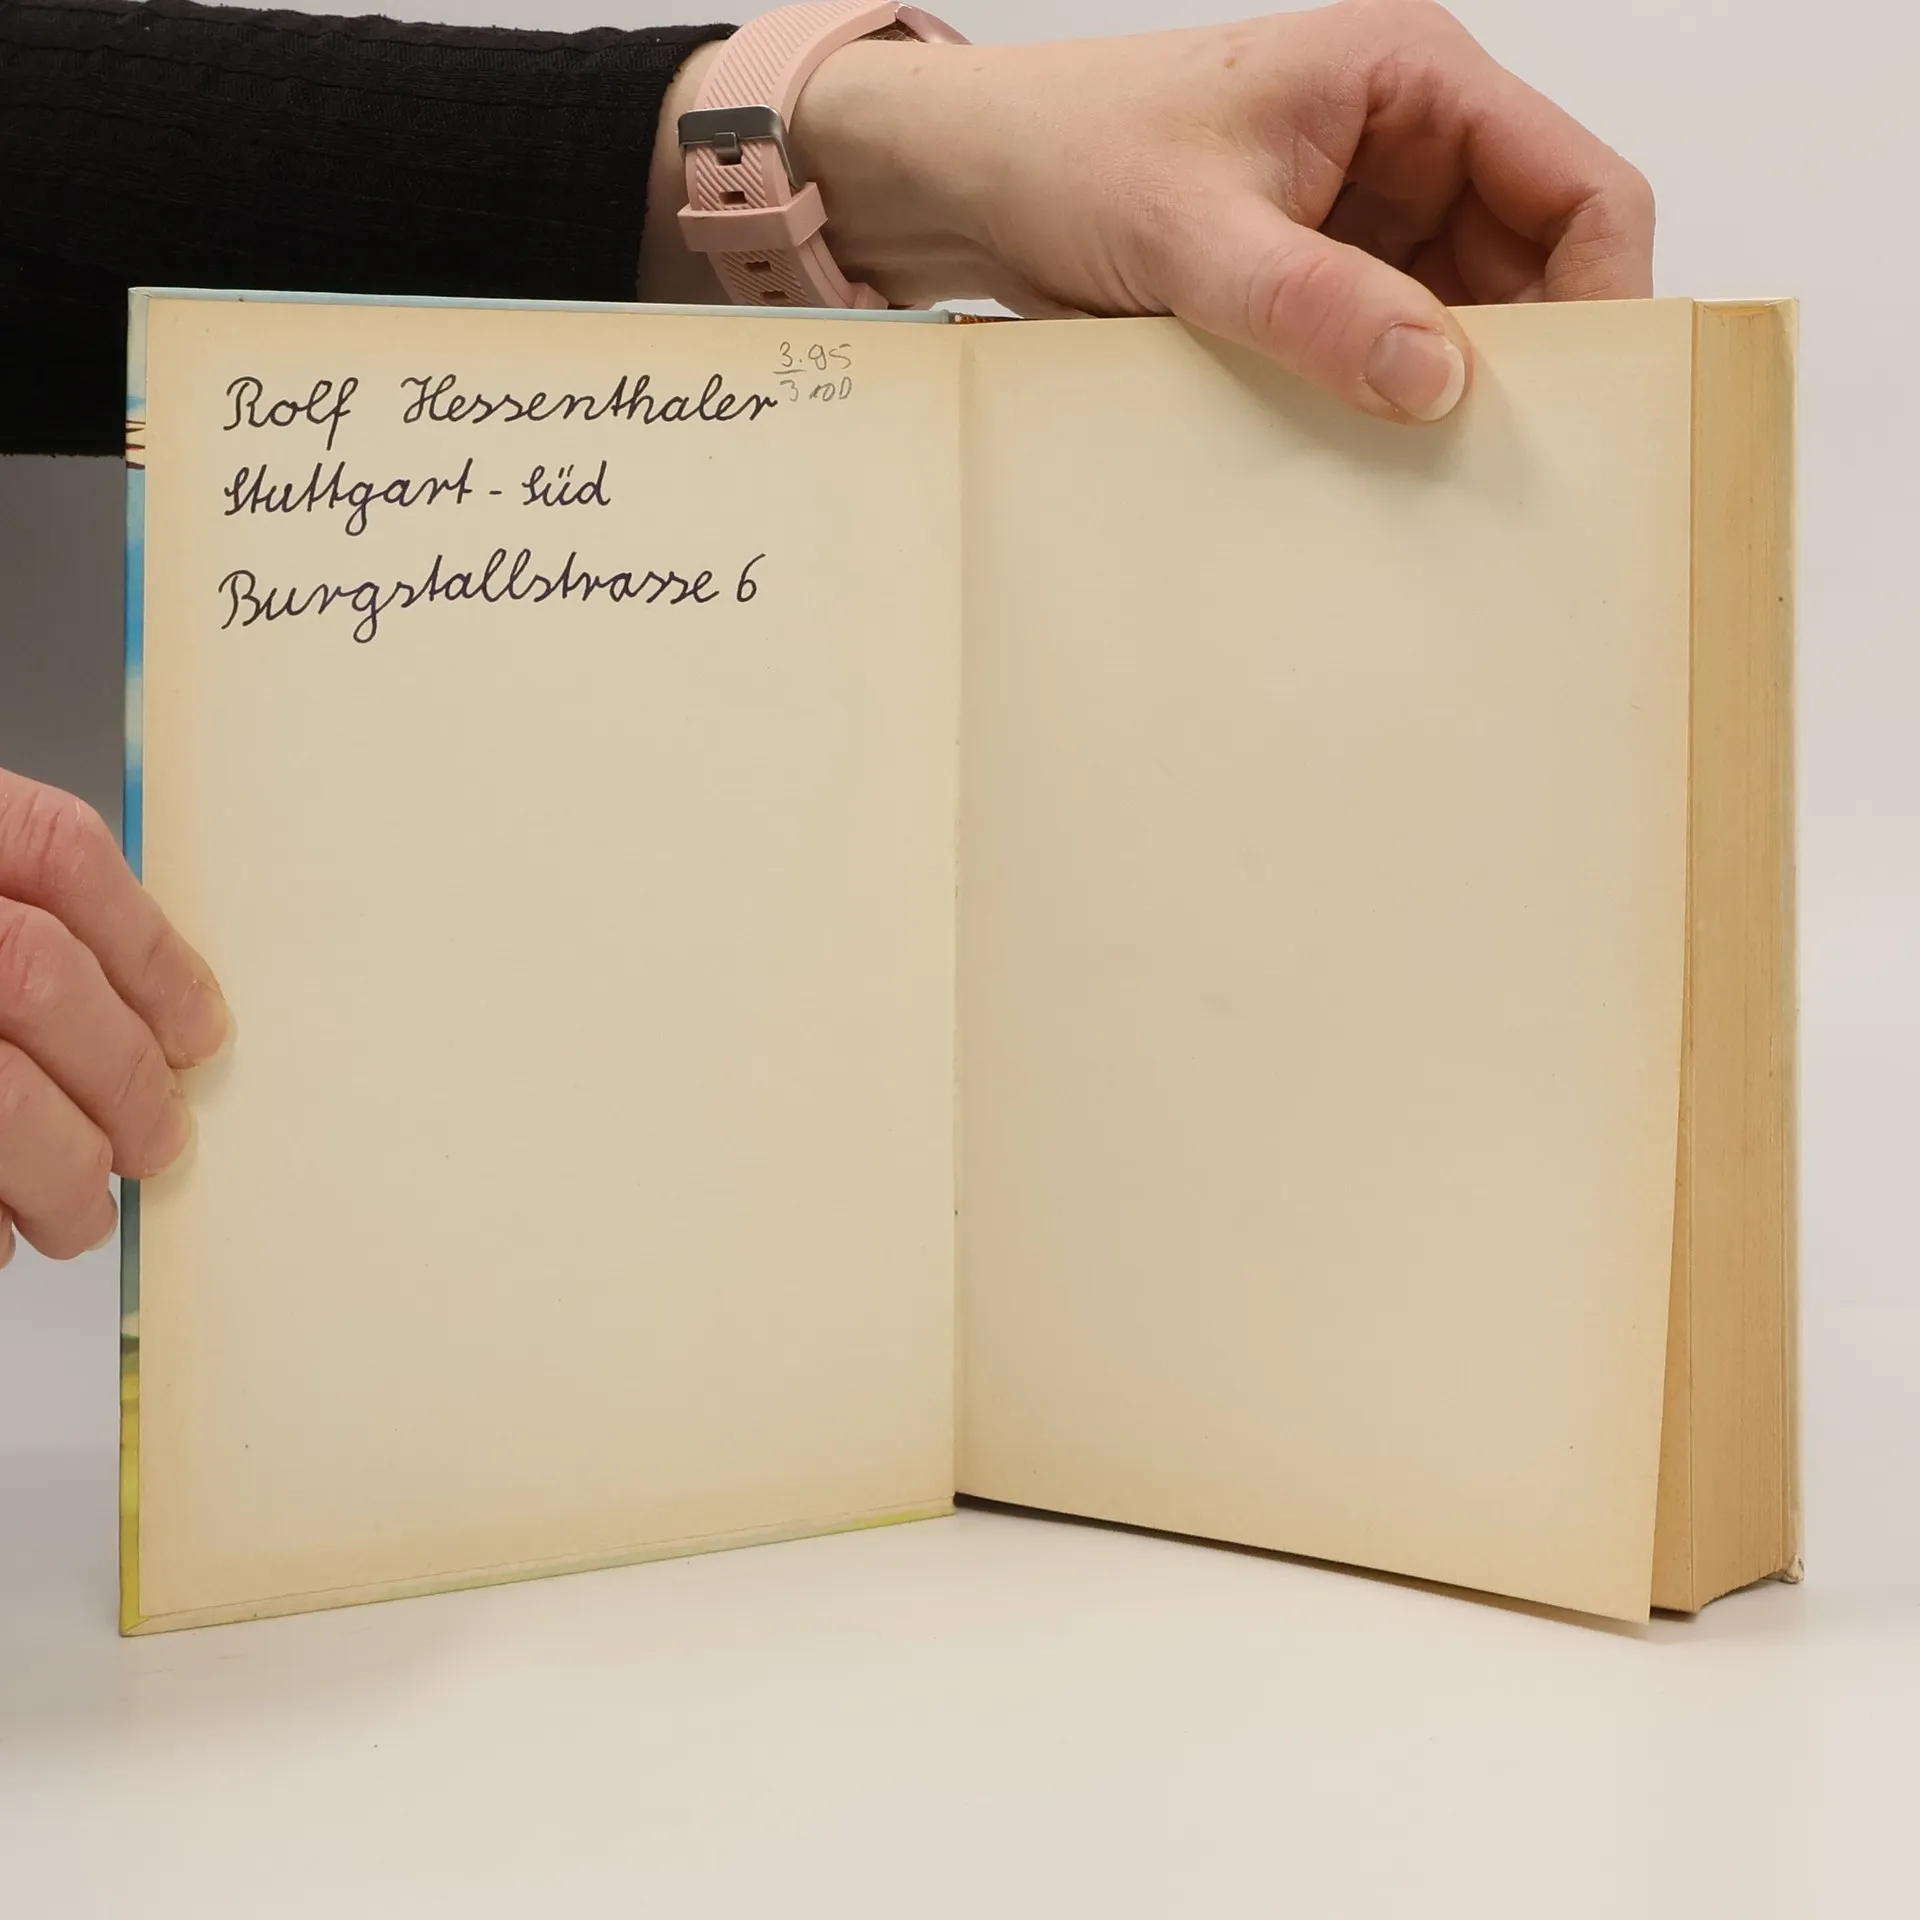 3.95
Rolf Hessenthaler
Stuttgart - Süd
Burgstallstrasse 6